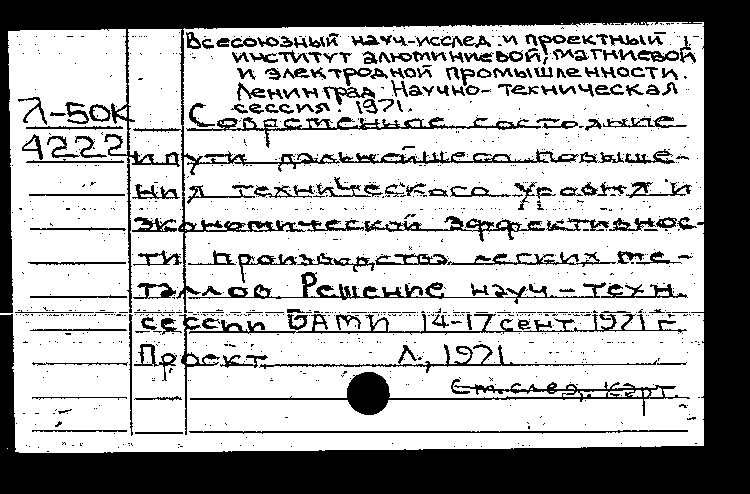 Всесоюзный науч-исслед. и проектный
институт алюминиевой, магниевой
и электродной промышленности.
Ленинград. Научно-техническая
сессия. 1971.
Л-50К
4222
Современное состояние
и пути дальнейшего повыше-
ния технического уровня и
экономической эффективнос-
ти производства легких ме-
таллов. Решение науч.-техн.
сессии ВАМИ 14-17 сент. 1971 г.
Проект Л., 1971.
См. след. карт.